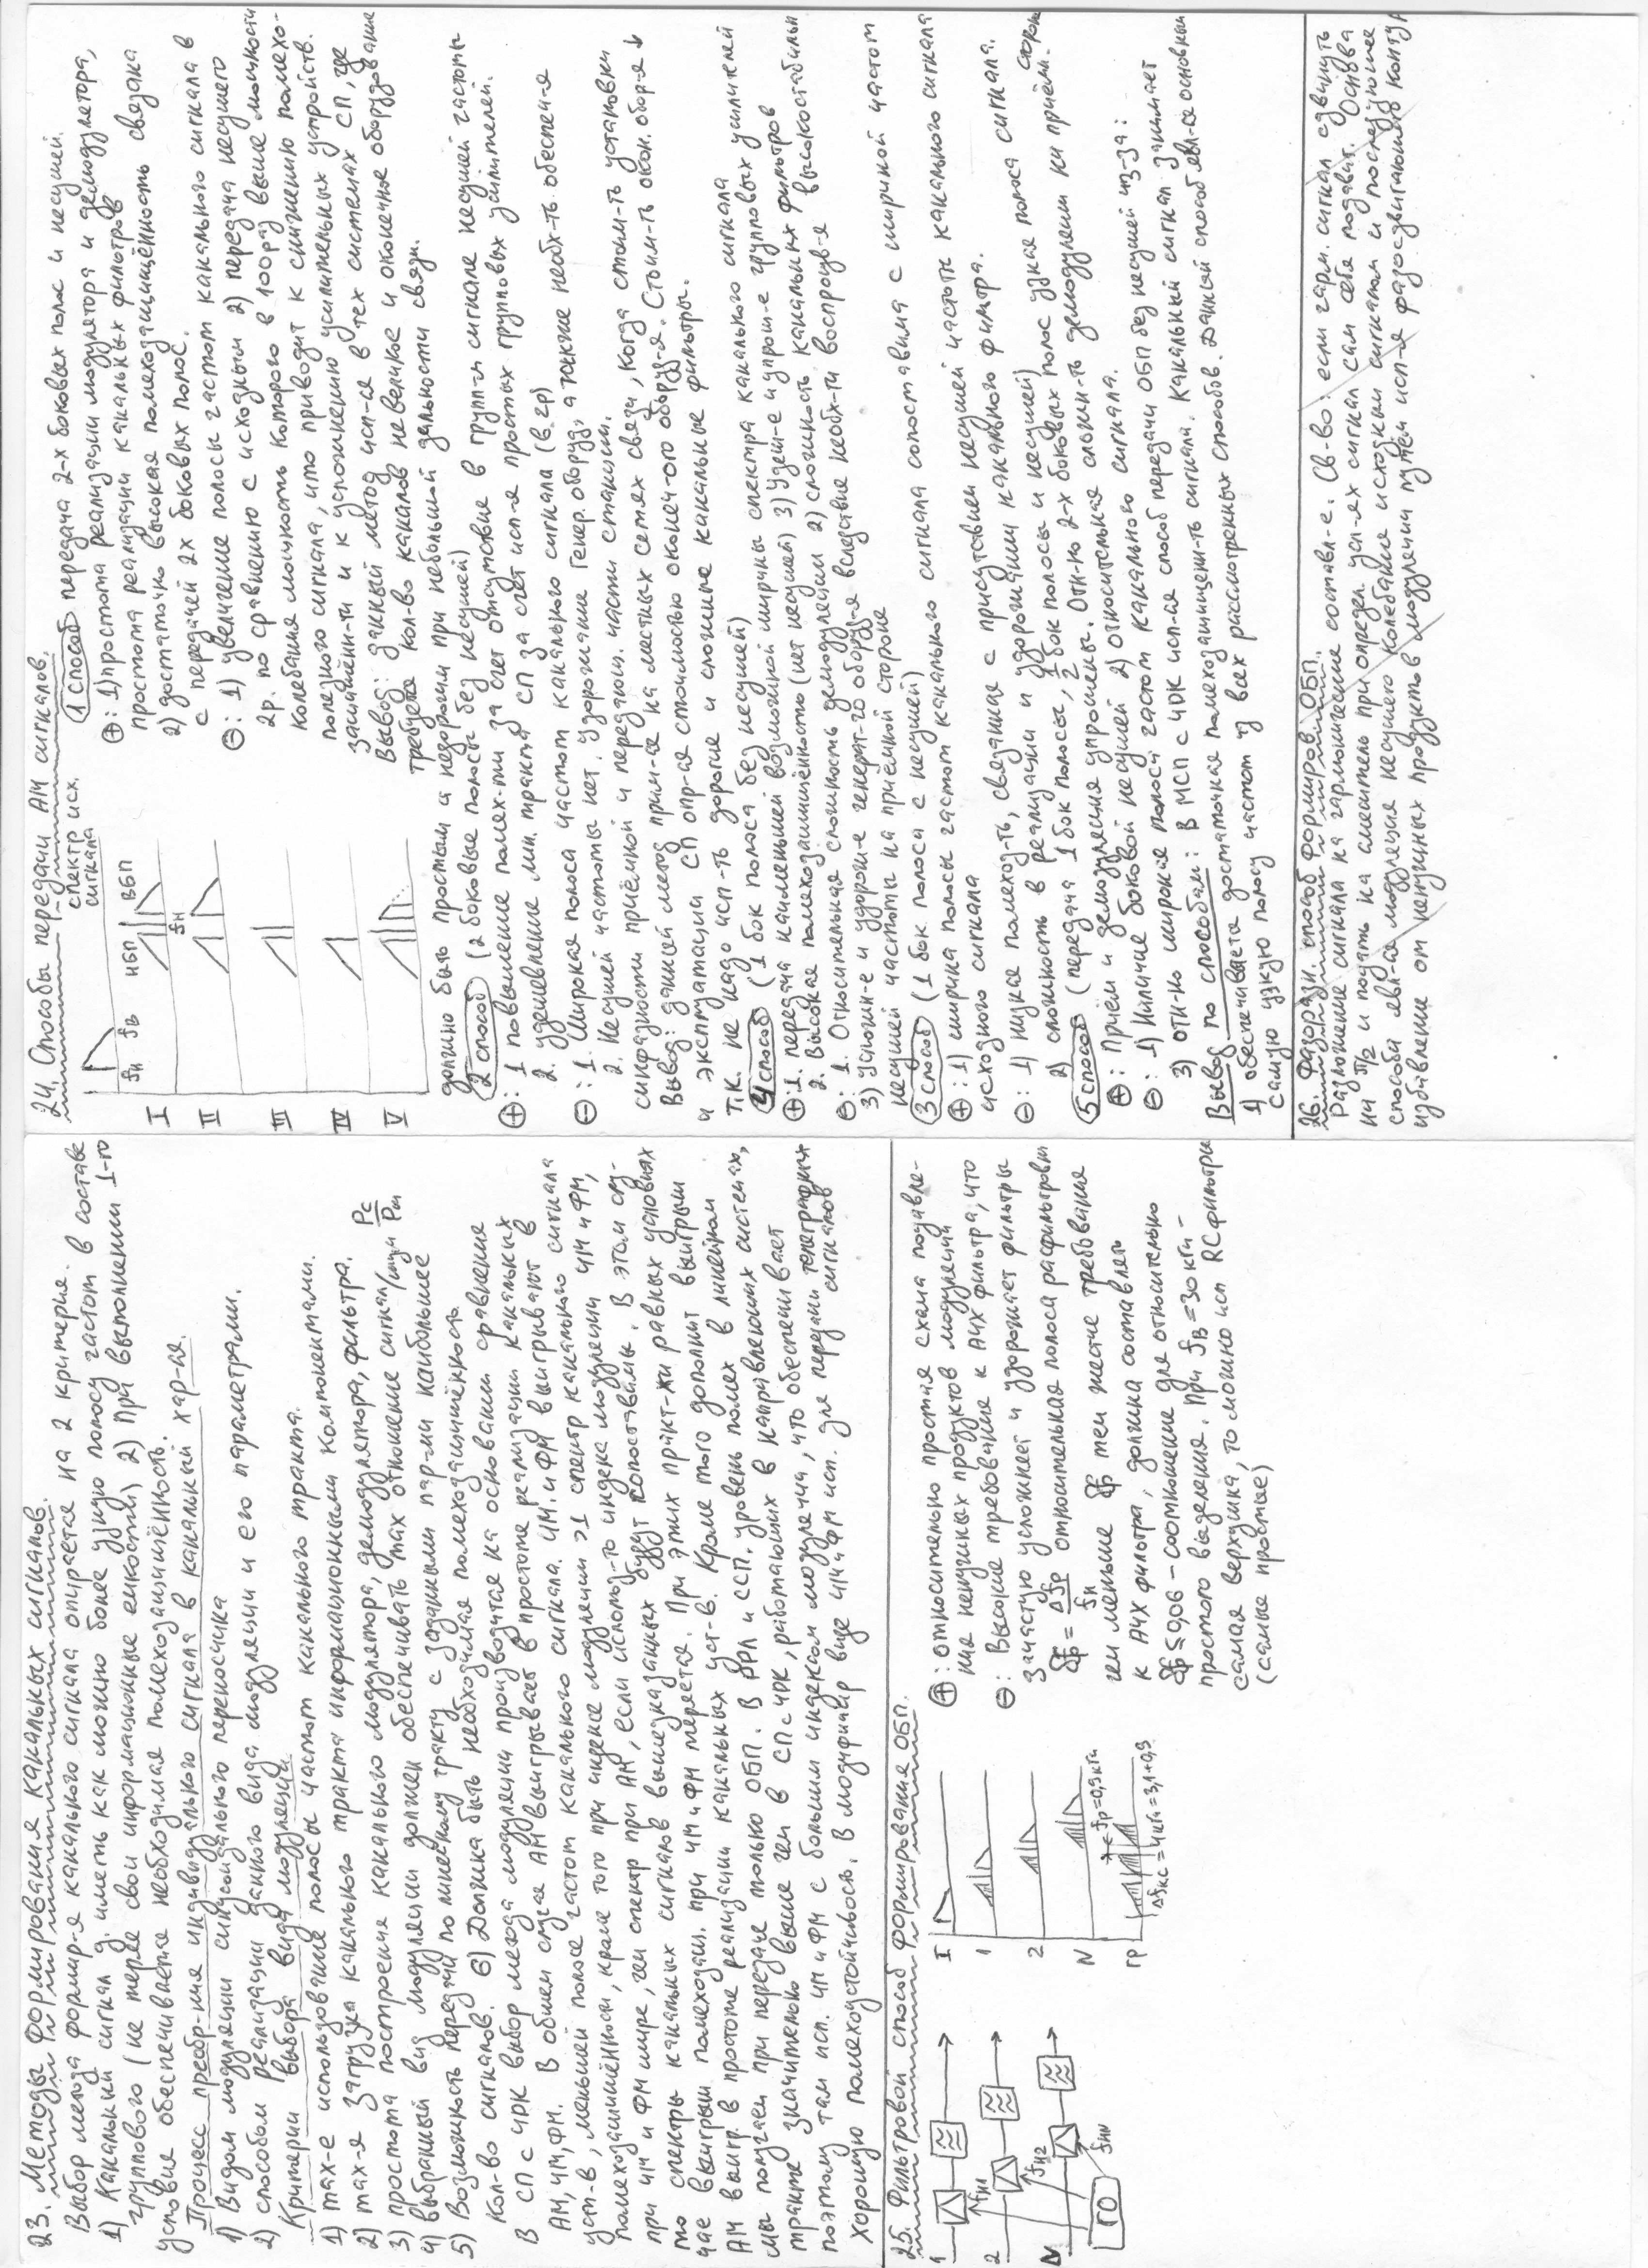 23. Методы формирования канальных сигналов.
Выбор метода формир-я канального сигнала опирается на 2 критерия.
1) Канальный сигнал д. иметь как можно более узкую полосу частот в составе
группового (не теряя свои информационные емкости) 2) При выполнении 1-го
условия обеспечивается необходимая помехозащищённость.
Процесс преобр-ния индивидуального сигнала в канальный хар-ся.
1) Видом модуляции синусоидального переносчика
2) способом реализации данного вида модуляции и его параметрами.
Критерии выбора вида модуляции.
1) max-е использование полосы частот канального тракта.
2) max-я загрузка канального тракта информационными компонентами.
3) простота построения канального модулятора, демодулятора, фильтра.
4) выбранный вид модуляции должен обеспечивать max отношение сигнал/шум Pс/Pш
5) Возможность передачи по линейному тракту с заданными пар-ми наибольшее
кол-во сигналов. 6) Должна быть необходимая помехозащищённость
В СП с ЧРК выбор метода модуляции производится на основании сравнения
АМ, ЧМ, ФМ. В общем случае АМ выигрывает в простоте реализации канальных
уст-в, меньшей полосе частот канального сигнала. ЧМ и ФМ выигрывают в
помехозащищённости, кроме того при индексе модуляции >1 спектр канального сигнала
при ЧМ и ФМ шире, чем спектр при АМ, если использ-то индекс модуляции ЧМ и ФМ,
то спектры канальных сигналов будут сопоставимы. В этом слу-
чае выигрыш помехозащ. при ЧМ и ФМ теряется. При этих практ-ки равных условиях
АМ выигр в простоте реализации канальных уст-в. Кроме того дополнит выигрыш
мы получаем при передаче только ОБП. В РРЛ и ССП. уровень помех в линейном
тракте значительно выше чем в СП с ЧРК, работающих в направляющих системах,
поэтому там исп. ЧМ и ФМ с большим индексом модуляции, что обеспечивает
хорошую помехоустойчивость. В модулир виде ЧМ и ФМ исп. для передачи телеграфных сигналов
25. Фильтровой способ формирования ОБП.
1
2
N
fн1
fн2
fнN
ГО
I
1
2
N
ГР
fр=0,9кГц
Δfкс=4кГц=3,1+0,9
⊕: относительно простая схема подавле-
ния ненужных продуктов модуляции
⊖: Высокие требования к АЧХ фильтра, что
зачастую усложняет и удорожает фильтры
δf = Δfр/fн относительная полоса расфильтровки
чем меньше δf тем жестче требования
к АЧХ фильтра, должна составлять
δf ≤ 0,06 – соотношение для относительно
простого выделения. При fв = 30кГц –
самая верхушка, то можно исп RC фильтры
(самые простые)
24. Способы передачи АМ сигналов.
спектр исх.
сигнала
fн fв НБП fн ВБП
I
II
III
IV
V
1 способ передача 2-х боковых полос и несущей.
⊕: 1) простота реализации модулятора и демодулятора,
простота реализации канальных фильтров
2) достаточно высокая помехозащищённость связана
с передачей 2х боковых полос.
⊖: 1) увеличение полосы частот канального сигнала в
2р. по сравнению с исходным 2) передача несущего
колебания мощность которого в 100раз выше мощности
полезного сигнала, что приводит к снижению помехо-
защищённ-ти и к усложнению усилительных устройств.
Вывод: данный метод исп-ся в тех системах СП, где
требуется кол-во каналов не великое и оконечное оборудование
должно быть простым и недорогим при небольшой дальности связи.
2 способ (2 боковые полосы без несущей)
⊕: 1 повышение помех-ти за счёт отсутствие в групп-м сигнале несущей частоты
2. удешевление лин. тракта СП за счёт исп-я простых групповых усилителей.
⊖: 1. Широкая полоса частот канального сигнала (в 2р)
2. Несущей частоты нет. удорожание генер. оборуд, а также необх-ть обеспеч-я
синфазности приёмной и передающ. части станции.
Вывод: данный метод прим-ся на местных сетях связи, когда стоим-ть установки
и эксплуатации СП опр-ся стоимостью оконеч-ого оборуд-я. Стоим-ть окон. обор-я ↓
т.к. не надо исп-ть дорогие и сложные канальные фильтры.
4 способ (1 бок полоса без несущей)
⊕: 1. передача наименьшей возможной ширины спектра канального сигнала
2. Высокая помехозащищённость (нет несущей) 3) Удеш-е и упрощ-е групповых усилителей
⊖: 1. Относительная сложность демодуляции 2) сложность канальных фильтров
3) усложн-е и удорож-е генерат-го оборуд-я вследствие необх-ти воспроизв-я высокостабильн
несущей частоты на приёмной стороне
3 способ (1 бок полоса с несущей)
⊕: 1) ширина полосы частот канального сигнала сопоставима с шириной частот
исходного сигнала
⊖: 1) низкая помехоз-ть, связанная с присутствием несущей частоты канального сигнала
2) сложность в реализации и удорожании канального фильтра.
5 способ (передача 1 бок полосы, 1/2 бок полосы и несущей)
⊕: Приём и демодуляция упрощены. Отн-но 2-х боковых полос узкая полоса сигнала.
⊖: 1) Наличие боковой несущей 2) относительная сложн-ть демодуляции на приёмн. стороне
3) отн-но широкая полоса частот канального сигнала.
Вывод по способам: В МСП с ЧРК исп-ся способ передачи ОБП без несущей из-за:
1) обеспечивается достаточная помехозащищенн-ть сигнала. Канальный сигнал занимает
самую узкую полосу частот из всех рассмотренных способов. Данный способ явл-ся основным
26. Фазоразн. способ формиров. ОБП.
Разложение сигнала на гармонические составл-е. Св-во: если гарм. сигнал сдвинуть
на π/2 и подать на смеситель при определ. усл-ях сигнал сам себя подавит. Основа
способа явл-ся модуляция несущего колебания исходным сигналом и последующее
избавление от ненужных продуктов модуляции путём исп-я фазосдвигающего конту